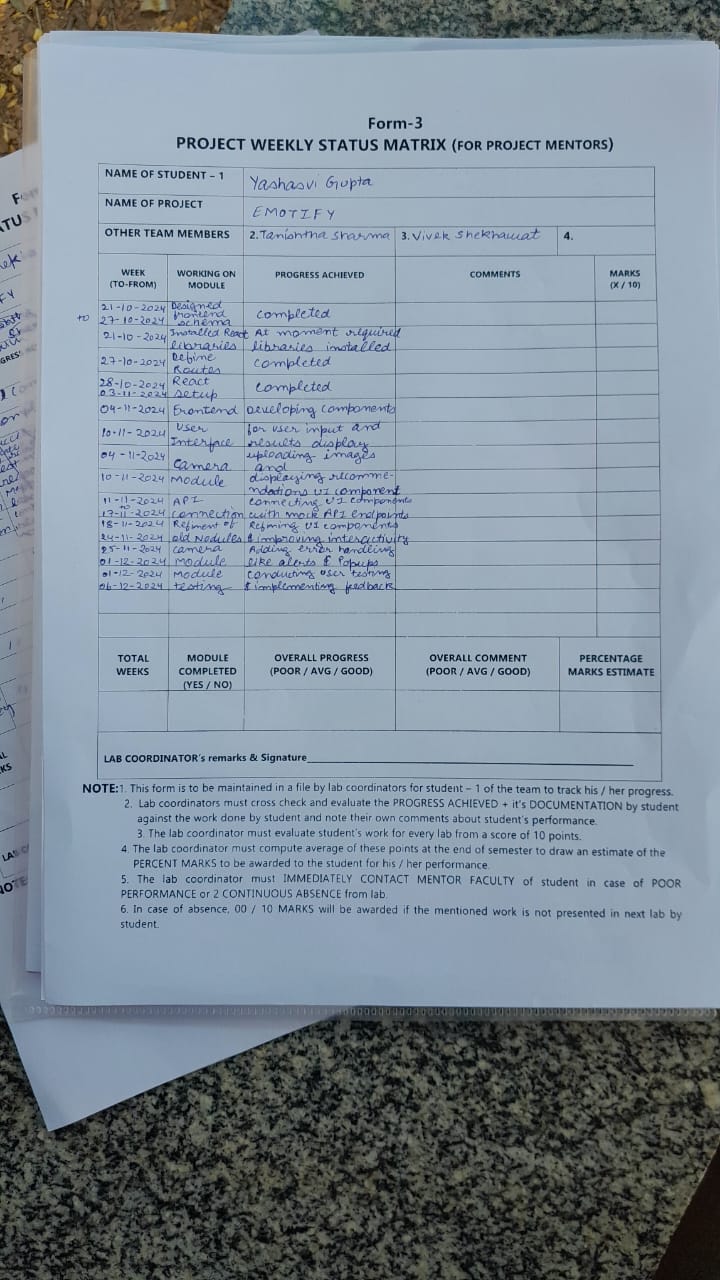 Form-3
PROJECT WEEKLY STATUS MATRIX (FOR PROJECT MENTORS)
NAME OF STUDENT – 1 Yashasvi Gupta
NAME OF PROJECT EMOTIFY
OTHER TEAM MEMBERS 2. Tanishtha Sharma 3. Vivek Shekhawat 4.
WEEK WORKING ON PROGRESS ACHIEVED COMMENTS MARKS
(TO-FROM) MODULE (X / 10)
21-10-2024 Designed
to 27-10-2024 frontend completed
schema
21-10-2024 Installed React At moment required
libraries libraries installed
27-10-2024 Define completed
Routes
28-10-2024 React completed
03-11-2024 setup
04-11-2024 Frontend Developing components
10-11-2024 User for user input and
Interface results display
04-11-2024 uploading images
Camera and
10-11-2024 Module displaying recomme-
ndations UI component
11-11-2024 API connecting UI components
to
17-11-2024 connection with mock API endpoints
18-11-2024 Refiment of Refining UI components
24-11-2024 old Modules & improving interactivity
25-11-2024 camera Adding error handling
01-12-2024 module like alerts & Popups
01-12-2024 Module conducting user testing
06-12-2024 testing & implementing feedback
TOTAL MODULE OVERALL PROGRESS OVERALL COMMENT PERCENTAGE
WEEKS COMPLETED (POOR / AVG / GOOD) (POOR / AVG / GOOD) MARKS ESTIMATE
(YES / NO)
LAB COORDINATOR's remarks & Signature
NOTE:1. This form is to be maintained in a file by lab coordinators for student – 1 of the team to track his / her progress.
2. Lab coordinators must cross check and evaluate the PROGRESS ACHIEVED + it's DOCUMENTATION by student
against the work done by student and note their own comments about student's performance.
3. The lab coordinator must evaluate student's work for every lab from a score of 10 points.
4. The lab coordinator must compute average of these points at the end of semester to draw an estimate of the
PERCENT MARKS to be awarded to the student for his / her performance.
5. The lab coordinator must IMMEDIATELY CONTACT MENTOR FACULTY of student in case of POOR
PERFORMANCE or 2 CONTINUOUS ABSENCE from lab.
6. In case of absence, 00 / 10 MARKS will be awarded if the mentioned work is not presented in next lab by
student.